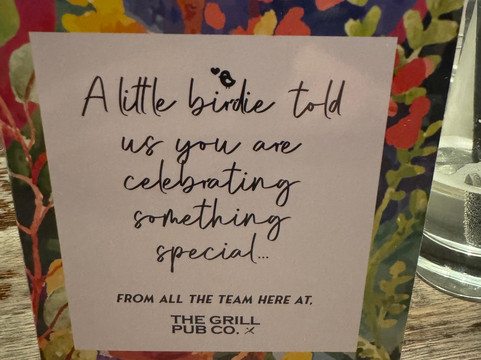 A little birdie told
us you are
celebrating
something
special...
FROM ALL THE TEAM HERE AT,
THE GRILL
PUB CO.